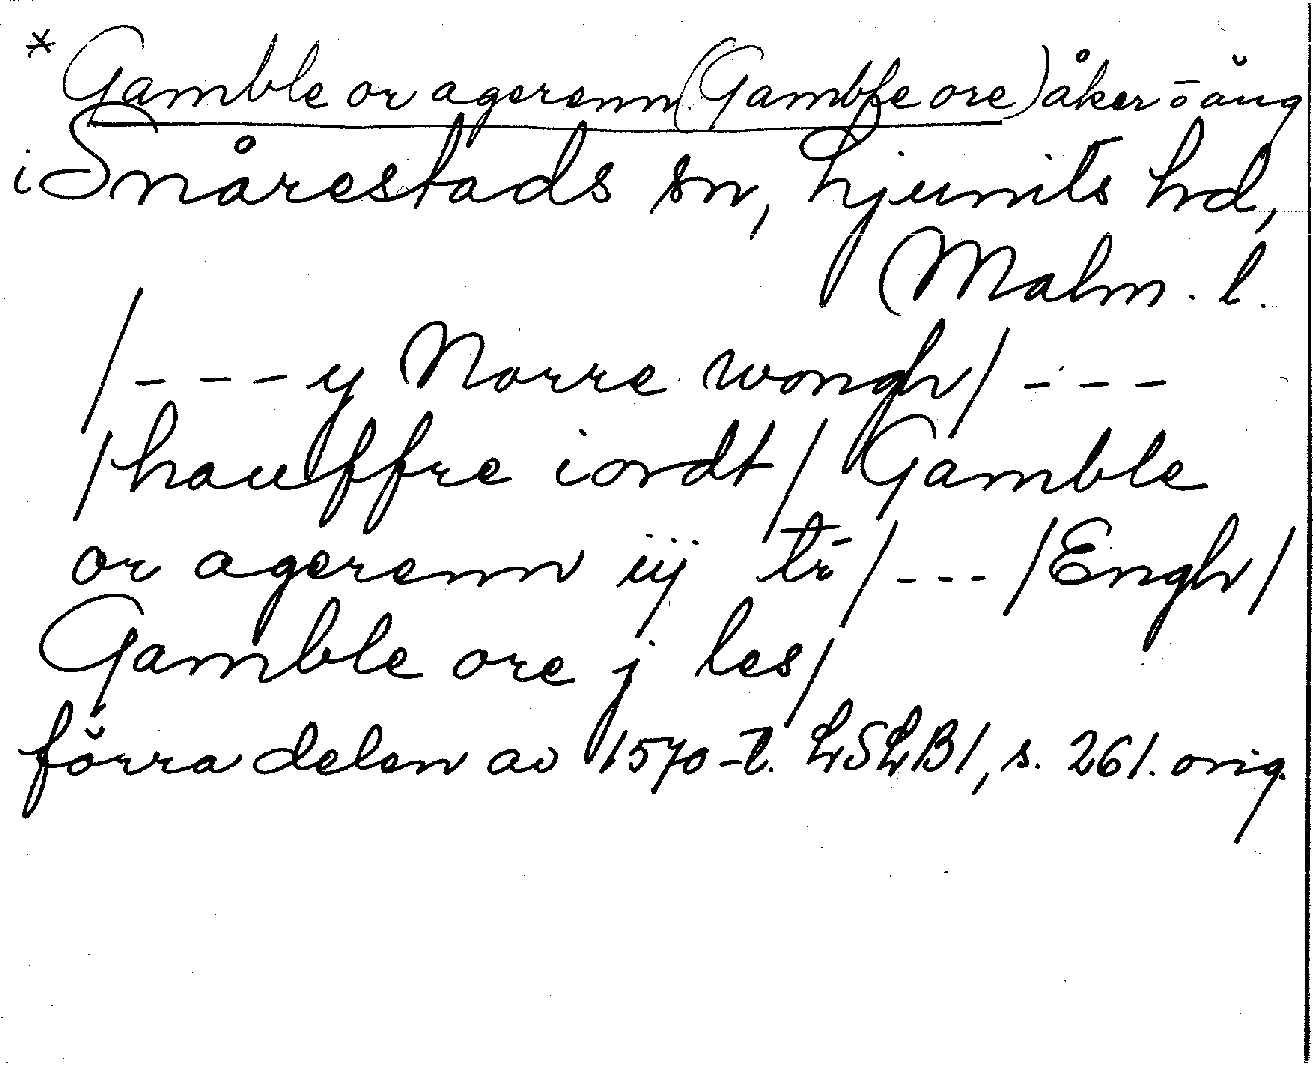 * Gamble or agerenn (Gamble ore) åker o äng
i Snårestads sn, Ljunits hd,
Malm. l.
/ - - - y Norre wongh / - - -
/ hauffre iordt / Gamble
or agerenn iij tr / - - - / Engh /
Gamble ore j les /
förra delen av 1570-t. LSLB1, s. 261. orig.